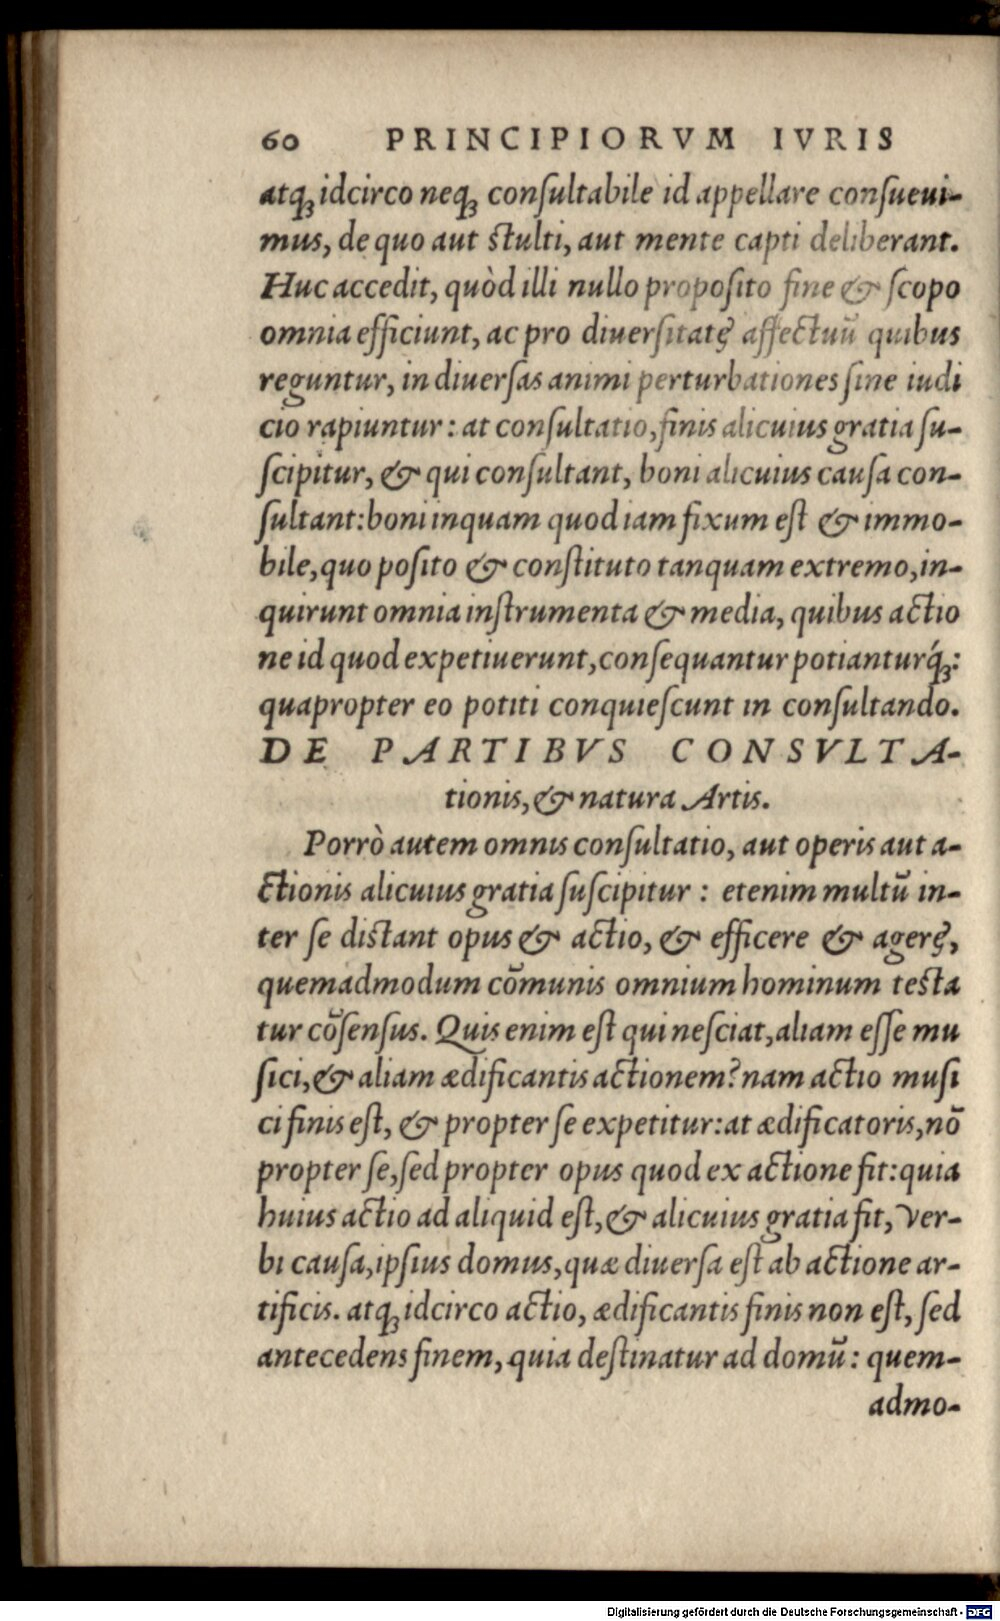 60 PRINCIPIORVM IVRIS
atq́ꝫ idcirco neqꝫ conſultabile id appellare conſueui-
mus, de quo aut ſtulti, aut mente capti deliberant.
Huc accedit, quòd illi nullo propoſito fine & ſcopo
omnia efficiunt, ac pro diuerſitatę affectuū quibus
reguntur, in diuerſas animi perturbationes ſine iudi
cio rapiuntur: at conſultatio, finis alicuius gratia ſu-
ſcipitur, & qui conſultant, boni alicuius cauſa con-
ſultant: boni inquam quod iam fixum eſt & immo-
bile, quo poſito & conſtituto tanquam extremo, in-
quirunt omnia inſtrumenta & media, quibus actio
ne id quod expetiuerunt, conſequantur potianturq́ꝫ:
quapropter eo potiti conquieſcunt in conſultando.
DE PARTIBVS CONSVLTA-
tionis, & natura Artis.
Porrò autem omnis conſultatio, aut operis aut a-
ctionis alicuius gratia ſuſcipitur : etenim multū in-
ter ſe diſtant opus & actio, & efficere & agerę,
quemadmodum cōmunis omnium hominum teſta
tur cōſenſus. Quis enim eſt qui neſciat, aliam eſſe mu
ſici, & aliam ædificantis actionem? nam actio muſi
ci finis eſt, & propter ſe expetitur: at ædificatoris, nō
propter ſe, ſed propter opus quod ex actione fit: quia
huius actio ad aliquid eſt, & alicuius gratia fit, ver-
bi cauſa, ipſius domus, quæ diuerſa eſt ab actione ar-
tificis. atqꝫ idcirco actio, ædificantis finis non eſt, ſed
antecedens finem, quia deſtinatur ad domū: quem-
admo-
Digitalisierung gefördert durch die Deutsche Forschungsgemeinschaft - DFG